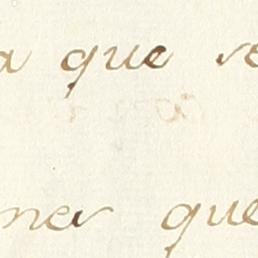 a que se
mer que